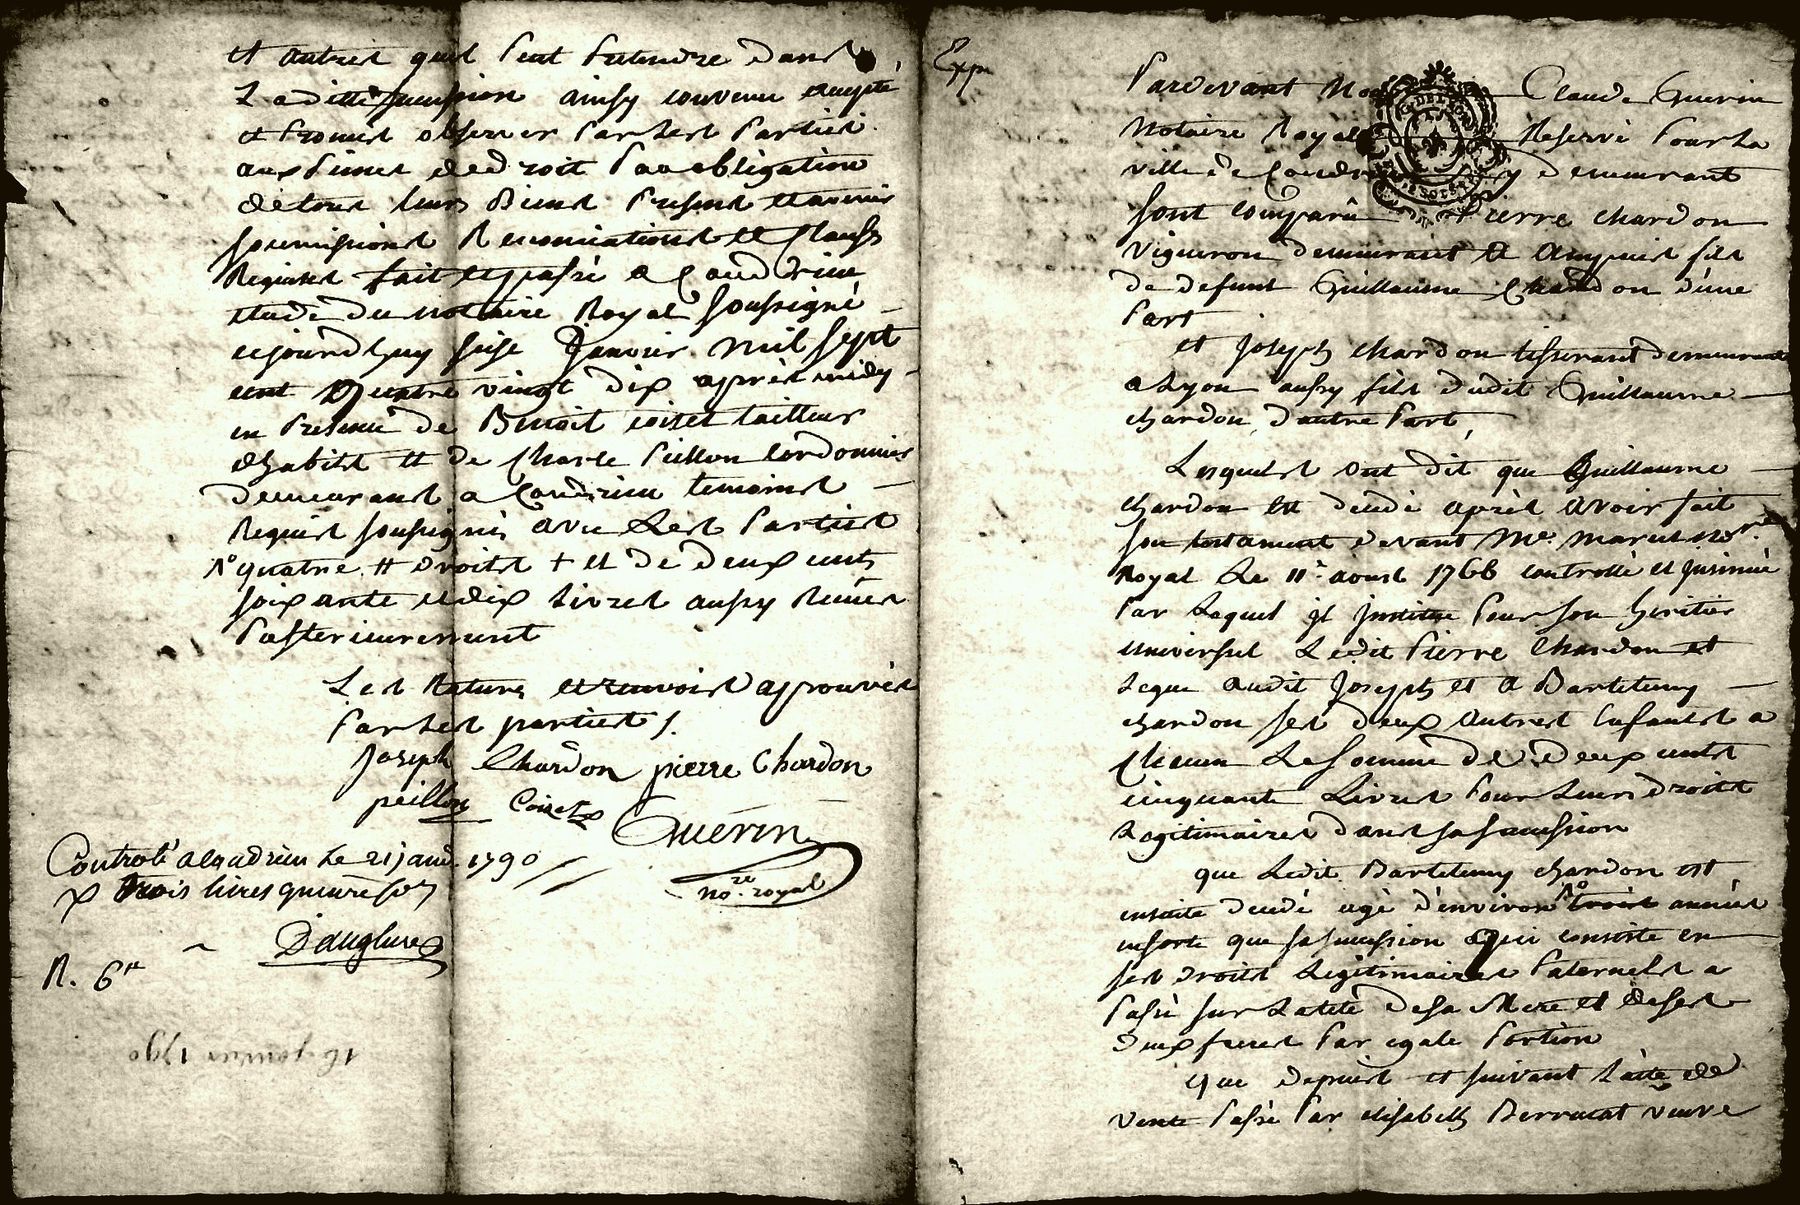 et autres quil peut pretendre dans
Laditte succession ainsy convenu accepté
et promis observer par Les parties
aux peines de droit par obligation
de tous leurs Biens presens et avenir
soumissions Renonciations et Clauses
Requises fait et passé a Condrieu
etude du notaire Royal soussigné
cejourdhuy seise Janvier mil sept
cent Quatre vingt dix après midy
en presence de Benoit coiset tailleur
dhabits et de Charle peillon cordonnier
demeurant a Condrieu temoins
Requis soussignés avec Les parties
quatre # droits + et de deux cents
soixante et dix Livres aussy
posterieurement
Les Ratures et renvois aprouvés
par Les parties /.
Joseph Chardon pierre Chardon
peillon Coiset
Guérin
no.re royal
Controlé a Condrieu Le 21 janv. 1790
trois livres quinze sols
R. 6#
16 janvier 1790
Exp
Pardevant Claude Guerin
Notaire Royal Reservé pour La
ville de demeurant
sont comparu pierre chardon
vigneron demeurant a Ampuis fils
de defunt Guillaume Chardon d'une
part
et Joseph chardon tisserant demeurant
a Lyon aussy fils dudit Guillaume
chardon, d'autre part,
Lesquels ont dit que Guillaume
chardon est decedé après avoir fait
son testament devant Me. no.re
Royal Le 11e aoust 1766 controllé et Jnsinué
par Lequel jl Jnstitue pour son heritier
universel Ledit pierre Chardon et
Legue audit Joseph et a Bartelemy
chardon ses deux autres enfants a
chacun La somme de deux cents
cinquante Livres pour Leurs droits
Legitimaires dans sa succession
que Ledit Bartelemy chardon est
ensuite decedé agé d'environ trois années
ensorte que sa succession Qui consiste en
ses droits Legitimaires paternels a
passé sur La tete de sa Mere et de ses
deux freres par egale portion
que depuis et suivant L'acte de
vente passé par elisabeth veuve